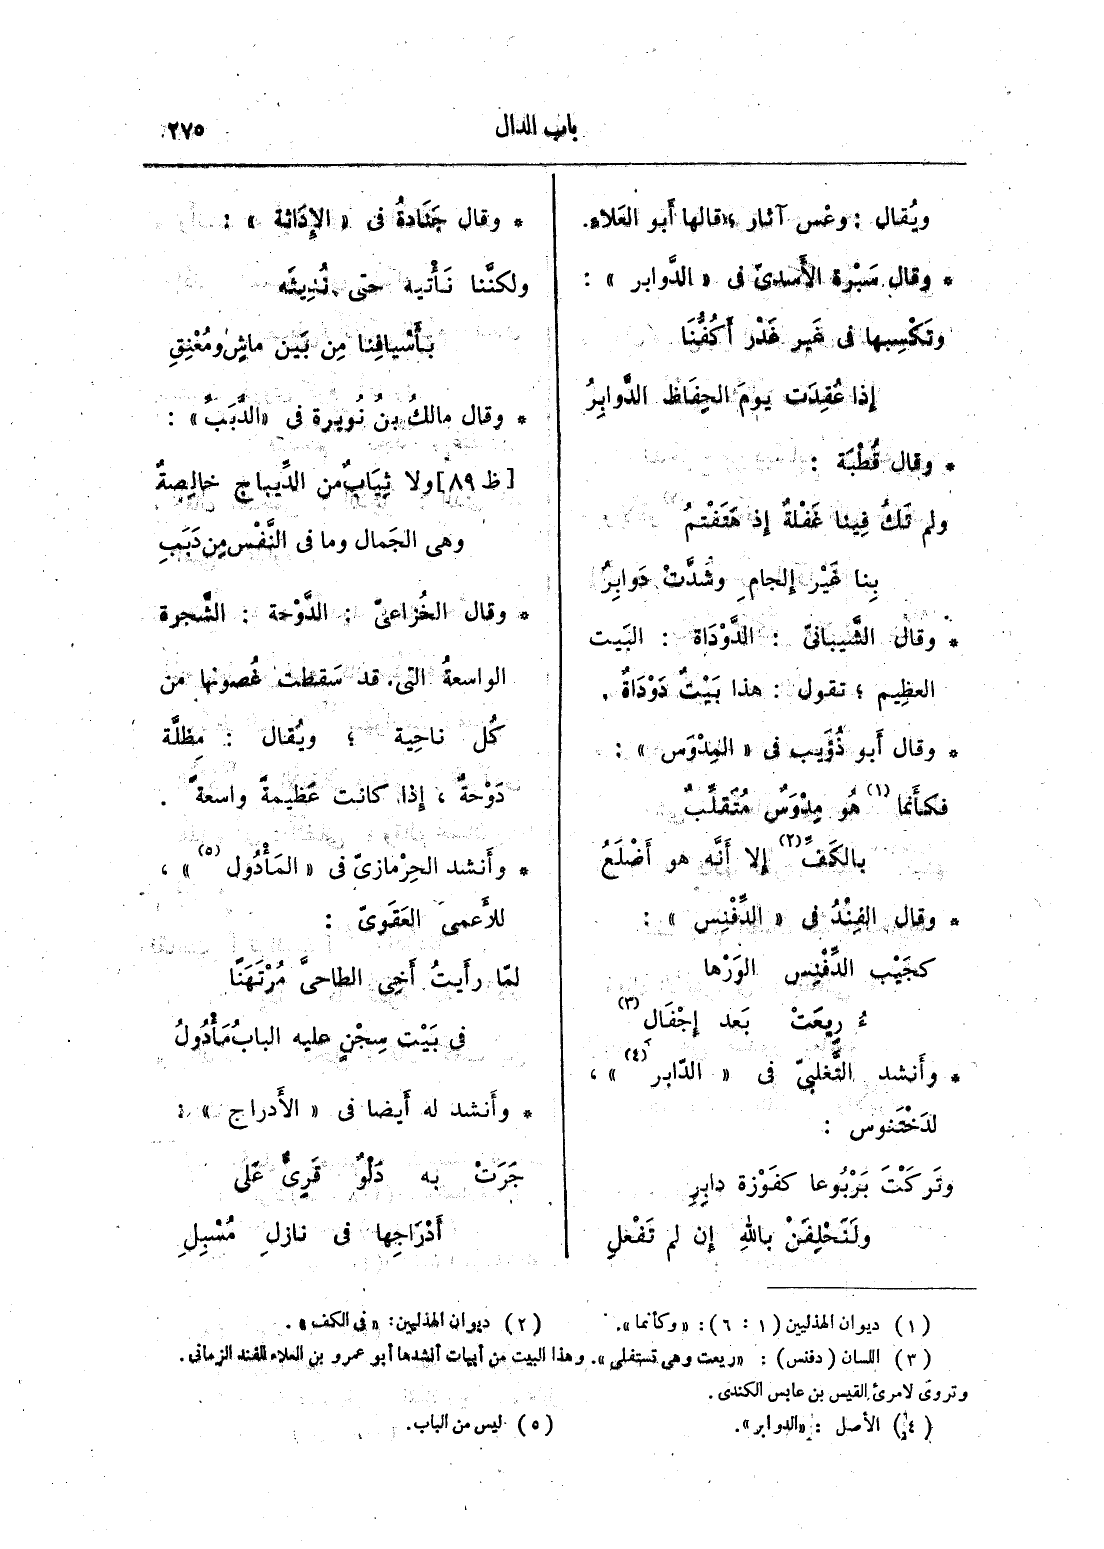 باب الدال
٢٧٥
ويُقال : وعْس آثار ؛ قالها أبو العَلاء.
* وقال سَبْرة الأَسدىّ فى « الدَّوابر » :
وتَكْسِبها فى غَير غَدْر أَكُفُّنَا
إذا عُقِدَت يومَ الحِفَاظ الدَّوابِرُ
* وقال قُطْبَة :
ولم تَكُ فِينا غَفْلةٌ إذ هَتَفْتمُ
بِنا غَيْر إلجامِ وشُدَّتْ دَوابِرُ
* وقال الشَّيبانىّ : الدَّوْدَاة : البَيت
العظِيم ؛ تقول : هذا بَيْتٌ دَوْدَاةٌ .
* وقال أبو ذُؤَيب فى « المِدْوَس » :
فكأَنما (١) هُو مِدْوَسٌ مُتَقلِّبٌ
بالكَفّ (٢) إلا أَنَّه هو أَضْلَعُ
* وقال الفِنْدُ فى « الدِّفْنِس » :
كجَيْب الدِّفْنِس الوَرْها
ءُ رِيعَتْ بَعد إجْفَالِ (٣)
* وأَنشد التَّغلبىّ فى « الدّابر (٤) » ،
لدَخْتَنوس :
وتَركَتْ يَرْبُوعا كفَوْزة دابِرِ
ولَنَحْلِفَنْ باللهِ إن لم تَفْعلِ
* وقال جَنَادةُ فى « الإدَاثة » :
ولكننَّا نَأْتيه حتى نُدِيثَه
بأَسْيافِنا مِن بَين ماشٍ ومُعْنِقِ
* وقال مالكُ بنُ نُويرة فى «الدَّبَبُ» :
[ظ ٨٩] ولا ثِيَابٌ من الدِّيباج خالِصةٌ
وهى الجَمال وما فى النَّفْس مِن دَبَبِ
* وقال الخُزاعىّ : الدَّوْحة : الشَّجرة
الواسعةُ التى قد سَقطت غُصونها من
كُل ناحِية ؛ ويُقال : مِظلَّة
دَوْحةٌ ، إذا كانت عَظيمةً واسعةً .
* وأَنشد الحِرْمازىّ فى « المَأْدُول (٥) » ،
للأَعمى العَقَوىّ :
لمّا رأَيتُ أَخِى الطاحىَّ مُرْتَهَنًا
فى بَيْت سِجْنٍ عليه البابُ مَأْدُولُ
* وأَنشد له أَيضا فى « الأَدراج » :
جَرَتْ به دَلْوُ قَرِىٍّ عَلَى
أَدْرَاجِها فى نازلِ مُسْبِلِ
(١) ديوان الهذليين (١ : ٦) : «وكأنما».
(٢) ديوان الهذليين: «فى الكف».
(٣) اللسان (دفنس) : «ريعت وهى تستفلى». وهذا البيت من أبيات أنشدها أبو عمرو بن العلاء للفند الزمانى.
وتروى لامرئ القيس بن عابس الكندى.
(٤) الأصل : «الدوابر».
(٥) ليس من الباب.